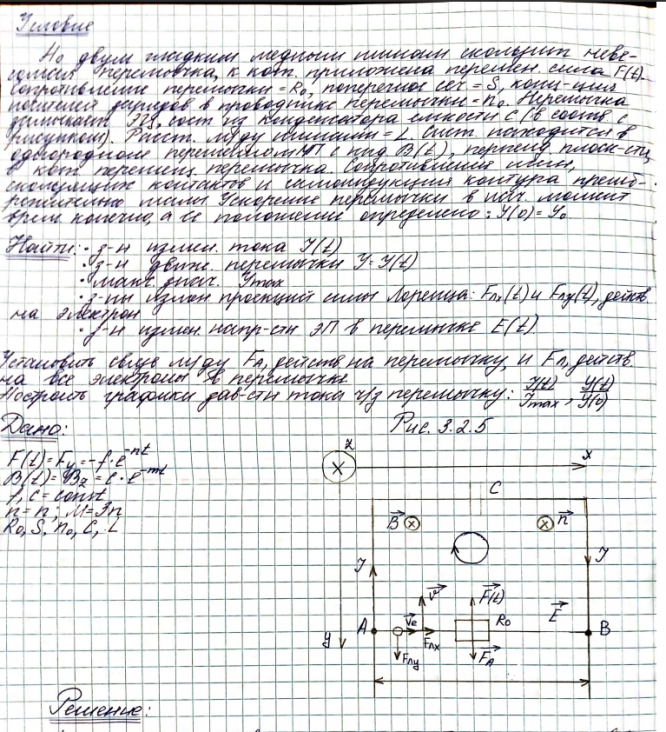 Условие
По двум гладким медным шинам скользит неве-
сомая перемычка, к кот. приложена перемен. сила F(t).
Сопротивление перемычки = R₀, поперечное сеч. = S, конц-ция
носителей зарядов в проводнике перемычки = n₀. Перемычка
замыкает эл. цепь, сост. из конденсатора емкости C (в соотв. с
рисунком). Расст. м/ду шинами = L. Сист. находится в
однородном переменном МП с инд. B(t), перпенд. плоск-сти,
в кот. перемещ. перемычка. Сопротивление шин,
скользящих контактов и самоиндукция контура пренеб-
режительно малы. Ускорение перемычки в нач. момент
врем. конечно, а её положение определено: y(0) = y₀
Найти: · з-н измен. тока I(t)
· з-н движ. перемычки y = y(t)
· макс. знач. Imax
· з-ны измен. проекций силы Лоренца: Fлx(t) и Fлy(t), действ.
на электрон
· з-н измен. напр-сти ЭП в перемычке E(t)
Установить связь м/ду FA, действ. на перемычку, и Fл, действ.
на все электроны в перемычке
Построить графики зав-сти тока ч/з перемычку: I(t)/Imax, y(t)/y(0)
Дано:
Рис. 3.2.5
F(t) = Fy = -f·e^-nt
B(t) = Bz = c·e^-mt
f, c = const
n = n; m = 3n
R₀, S, n₀, C, L
z
x
C
B
n
I
I
v
F(t)
A
ve
Fлx
R₀
E
B
y
Fлy
FA
Решение: